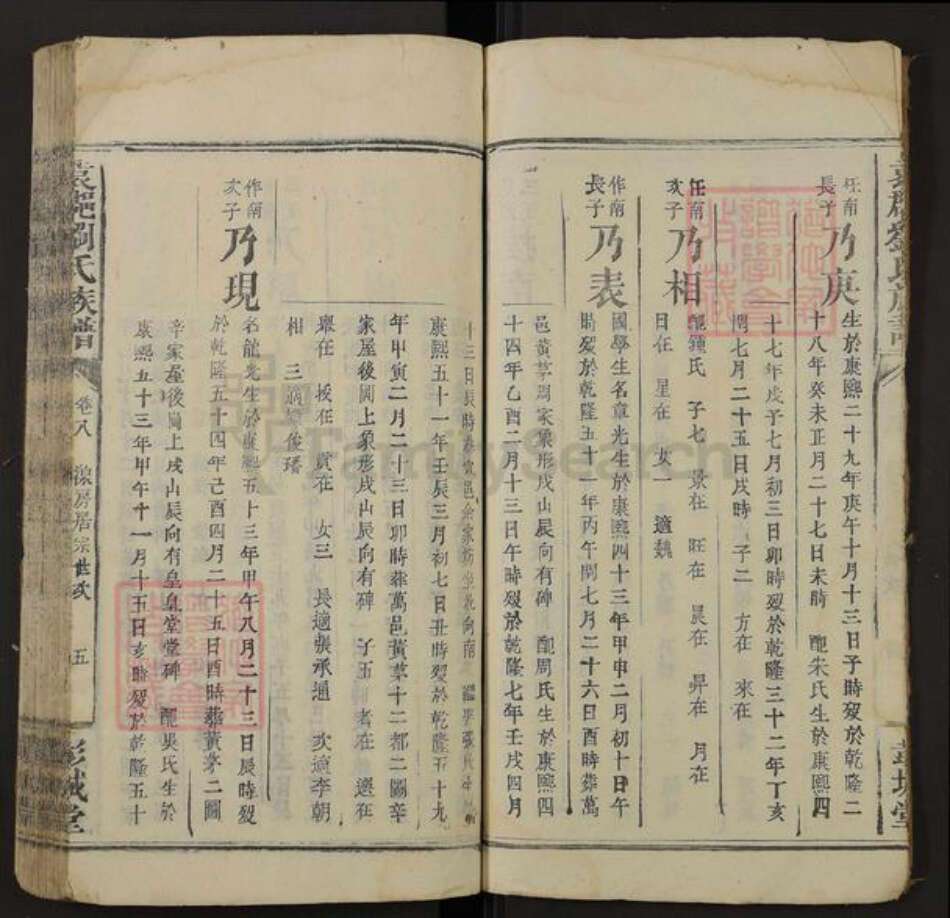 任南
長子
乃庚
生於康熙二十九年庚午十月十三日子時歿於乾隆二
十八年癸未正月二十七日未時 配朱氏生於康熙四
十七年戊子七月初三日卯時歿於乾隆三十二年丁亥
閏七月二十五日戌時 子二 方在 來在
任南
次子
乃相
配鍾氏 子七 景在 旺在 晨在 昇在 月在
日在 星在 女一 適魏
作南
長子
乃表
國學生名章光生於康熙四十三年甲申二月初十日午
時歿於乾隆五十一年丙午閏七月二十六日酉時葬萬
邑黃茅周家 形戌山辰向有碑 配周氏生於康熙四
十四年乙酉二月十三日午時歿於乾隆七年壬戌四月
十三日辰時葬 邑余家坊 向南 繼
康熙五十一年壬辰三月初七日丑時歿於乾隆五十九
年甲寅二月二十三日卯時葬萬邑黃茅十二都二圖辛
家屋後岡上象形戌山辰向有碑 子五 耆在 選在
在 在 在 女三 長適張承通 次適李朝
相 三適 俊璠
作南
次子
乃現
名龍光生於康熙五十三年甲午八月二十三日辰時歿
於乾隆五十四年己酉四月二十五日酉時葬黃茅二圖
辛家屋後岡上戌山辰向有皇皇堂堂碑 配吳氏生於
康熙五十三年甲午十一月十五日亥時歿於乾隆五十
劉氏族譜
卷八
房居宗世次
五
彭城堂
FamilySearch